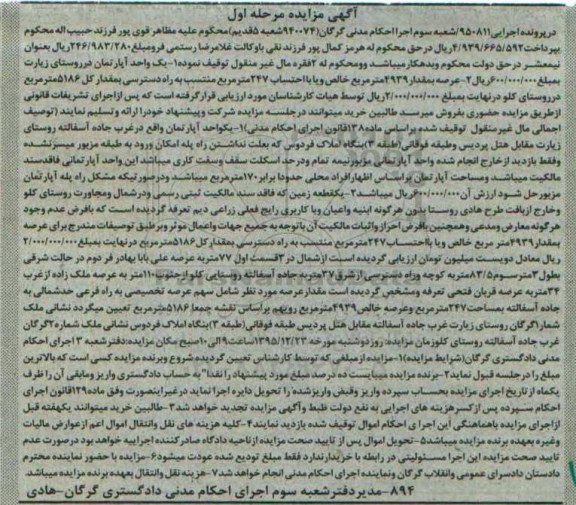 آگهی مزایده مرحله اول
درپرونده اجرایی۹۵۰۸۱۱/شعبه سوم اجرا احکام مدنی گرگان(۹۴۰۰۷۴شعبه ۵قدیم)محکوم علیه مظاهر قوی پور فرزند حبیب اله محکوم
بپرداخت۴/۹۳۹/۶۶۵/۵۹۲ریال در حق محکوم له هرمز کمال پور فرزند نقی باوکالت غلامرضا رستمی فرومبلغ۲۴۶/۹۸۳/۲۸۰ریال بعنوان
نیمعشر درحق دولت محکوم وبدهکارمیباشد ومحکوم له ۲فقره مال غیر منقول توقیف نموده۱-یک واحد آپارتمان درروستای زیارت
بمبلغ۶۰۰/۰۰۰/۰۰۰ریال۲-عرصه بمقدار۴۹۳۹مترمربع خالص ویا بااحتساب ۲۴۷مترمربع منتسب به راه دسترسی بمقدار کل ۵۱۸۶مترمربع
درروستای کلو درنهایت بمبلغ ۲/۰۰۰/۰۰۰/۰۰۰ریال توسط هیات کارشناسان مورد ارزیابی قرارگرفته است که پس ازاجرای تشریفات قانونی
ازطریق مزایده حضوری بفروش میرسد طالبین خرید میتوانند درجلسه مزایده شرکت وپیشنهاد خودرا ارائه وتسلیم نمایند (توصیف
اجمالی مال غیرمنقول توقیف شده براساس ماده۱۳۸قانون اجرای احکام مدنی)۱-یکواحد آپارتمان واقع درغرب جاده آسفالته روستای
زیارت مقابل هتل پردیس وطبقه فوقانی(طبقه ۳)بنگاه املاک فردوس که بعلت نداشتن راه پله امکان ورود به طبقه مزبور میسرنشده
وفقط بازدید ازخارج انجام شده واحد آپارتمانی مزبورنیمه تمام ودرحد اسکلت سقف وسفت کاری میباشد این واحد آپارتمانی فاقدسند
مالکیت میباشد ومساحت آپارتمان براساس اظهارافراد محلی حدودا برابر۱۷۰مترمربع میباشد ودرصورتیکه مشکل راه پله آپارتمان
مزبورحل شود ارزش آن ۶۰۰/۰۰۰/۰۰۰ریال میباشد۲-یکقطعه زمین که فاقد سند مالکیت ثبتی رسمی ودرشمال ومجاورت روستای کلو
وخارج ازبافت طرح هادی روستا بدون هرگونه ابنیه واعیان وبا کاربری رایج فعلی زراعی دیم تعرفه گردیده است که بافرض عدم وجود
هرگونه معارض ومدعی وهمچنین بافرض احراز واثبات مالکیت آن باتوجه به جمیع جهات واعمال موثر وبرطبق توصیفات مندرج برای عرصه
بمقدار۴۹۳۹متر مربع خالص ویا بااحتساب۲۴۷مترمربع منتسب به راه دسترسی بمقدار کل۵۱۸۶مترمربع درنهایت بمبلغ۲/۰۰۰/۰۰۰/۰۰۰
ریال معادل دویست میلیون تومان ارزیابی گردیده است ازشمال در ۳قسمت اول ۷۷متربه عرصه علی بابا بهادر فر دوم در حالت شرقی
بطول ۳مترسوم۸۳/۵متربه کوچه وراه دسترسی ازشرق۳۷متربه جاده آسفالته روستایی کلو ازجنوب۱۱۰متر به عرصه ملک زاده ازغرب
۳۴متربه عرصه قربان فتحی تعرفه ومشخص گردیده است مقدارعرصه مورد نظر شامل سهم عرصه تخصیصی به راه فرعی حدشمالی به
جاده آسفالته بمساحت۲۴۷مترمربع وعرصه خالص۴۹۳۹مترمربع رویهم براساس نقشه جمعا ۵۱۸۶مترمربع تعیین میگردد نشانی ملک
شمار۱گرگان روستای زیارت غرب جاده آسفالته مقابل هتل پردیس طبقه فوقانی(طبقه ۳)بنگاه املاک فردوس نشانی ملک شماره۲گرگان
غرب جاده آسفالته روستای کلوزمان مزایده:روزدوشنبه مورخه ۱۳۹۵/۱۲/۲۳ساعت۹الی۱۰صبح مکان مزایده:دفترشعبه ۳اجرای احکام
مدنی دادگستری گرگان(شرایط مزایده)۱-مزایده از مبلغی که توسط کارشناس تعیین گردیده شروع وبرنده مزایده کسی است که بالاترین
مبلغ را درجلسه قبول نماید۲-برنده مزایده میبایست ده درصد مبلغ مورد پیشنهاد را نقدا"به حساب دادگستری واریز ومابقی آن را ظرف
یکماه از تاریخ اجرای مزایده بحساب سپرده واریز وقبض واریزشده را تحویل دایره اجرا نماید درغیراینصورت وفق ماده۱۲۹قانون اجرای
احکام سپرده پس ازکسرهزینه های اجرایی به نفع دولت ظبط وآگهی مزایده تجدید خواهد شد۳-طالبین خرید میتوانند یکهفته قبل
ازاجرای مزایده باهماهنگی این اجرای احکام اموال توقیف شده بازدید نمایند۴-کلیه هزینه های نقل وانتقال اموال اعم ازعوارض مالیات
وغیره بعهده برنده مزایده میباشد۵-تحویل اموال پس از تایید صحت مزایده ازناحیه دادگاه صادرکننده اجراییه خواهد بود درصورت عدم
تایید صحت مزایده این اجرا مسئولیتی در رابطه با خریدارندارد فقط مبلغ تودیع شده عودت میشود۶-مزایده با حضور نماینده محترم
دادستان دادسرای عمومی وانقلاب گرگان ونماینده اجرای احکام مدنی انجام خواهد شد۷-هزینه نقل وانتقال بعهده برنده مزایده میباشد.
۸۹۴-مدیردفترشعبه سوم اجرای احکام مدنی دادگستری گرگان-هادی